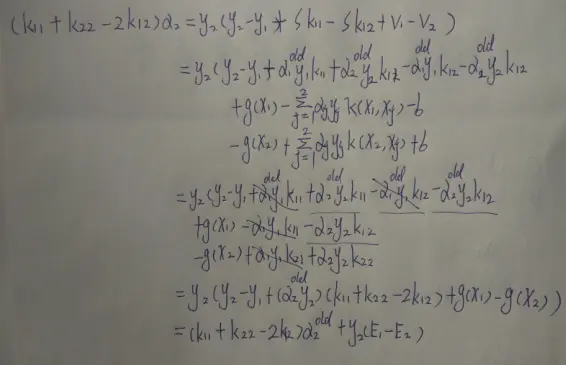 (k₁₁ + k₂₂ - 2k₁₂)α₂ = y₂(y₂ - y₁ + ςk₁₁ - ςk₁₂ + v₁ - v₂)
= y₂(y₂ - y₁ + α₁^old y₁k₁₁ + α₂^old y₂k₁₂ - α₁^old y₁k₁₂ - α₂^old y₂k₁₂
+g(x₁) - ∑_{j=1}^2 αⱼyⱼ k(x₁,xⱼ) - b
-g(x₂) + ∑_{j=1}^2 αⱼyⱼ k(x₂,xⱼ) + b
= y₂(y₂ - y₁ + α₁^old y₁k₁₁ + α₂^old y₂k₁₁ - α₁^old y₁k₁₂ - α₂^old y₂k₁₂
+g(x₁) - α₁y₁k₁₁ - α₂y₂k₁₂
-g(x₂) + α₁y₁k₂₁ + α₂y₂k₂₂
= y₂(y₂ - y₁ + (α₂^old y₂)(k₁₁ + k₂₂ - 2k₁₂) + g(x₁) - g(x₂))
= (k₁₁ + k₂₂ - 2k₁₂)α₂^old + y₂(E₁ - E₂)